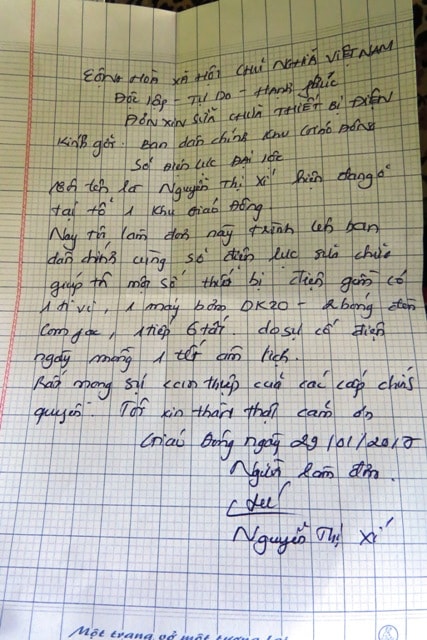 CỘNG HÒA XÃ HỘI CHỦ NGHĨA VIỆT NAM
Độc lập Tự Do - Hạnh phúc
ĐƠN XIN SỬA CHỮA THIẾT BỊ ĐIỆN
Kính gởi: Ban dân chính khu Giáo Đông
Sở điện lực
tôi tên là Nguyễn Thị Xí hiện đang ở
tại tổ 1 khu Giáo Đông
Nay tôi làm đơn này trình lên ban
dân chính cùng sở điện lực sửa chữa
giúp tôi một số thiết bị điện gồm có
1 ti vi, 1 máy bơm DK20 - 2 bóng đèn
Compac, 1 tiếp 6 tất. do sự cố điện
ngày mồng 1 tết âm lịch.
Rất mong sự can thiệp của các cấp chính
quyền. Tôi xin thành thật cảm ơn
Giáo Đông ngày 29/01/2017
Người làm đơn
Nguyễn Thị Xí
Một trang vở một tương lai